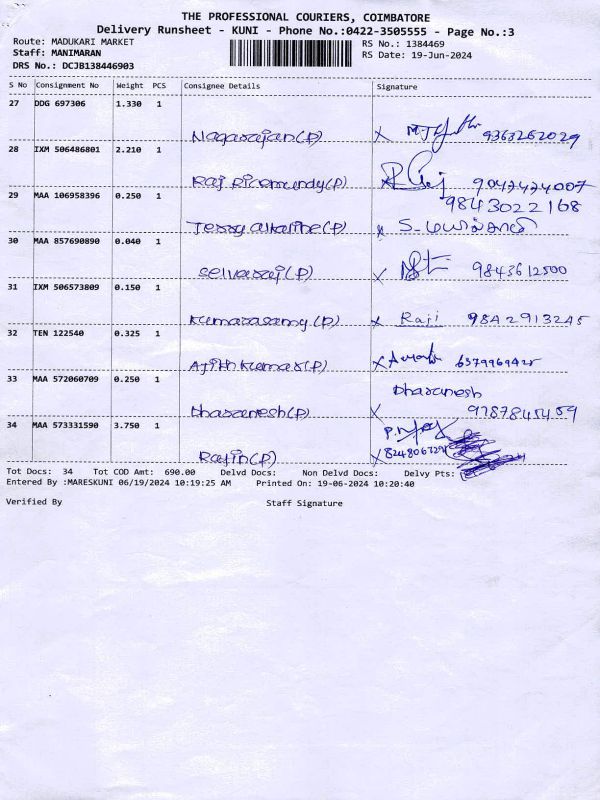 THE PROFESSIONAL COURIERS, COIMBATORE
Delivery Runsheet - KUNI - Phone No.:0422-3505555 - Page No.:3
Route: MADUKARI MARKET
RS No.: 1384469
Staff: MANIMARAN
RS Date: 19-Jun-2024
DRS No.: DCJB138446903
S No Consignment No Weight PCS Consignee Details Signature
27 DDG 697306 1.330 1
Nagarajan(P) x 9363262029
28 IXM 506486801 2.210 1
Raj Ricemundy(P) x 9047474007
29 MAA 106958396 0.250 1 9843022168
Jessy alkaline(P) x
30 MAA 857690890 0.040 1
Selvaraj(P) x 9843612500
31 IXM 506573809 0.150 1
Kumarasamy(P) x Raji 9842913245
32 TEN 122540 0.325 1
Ajith Kumar(P) x 6379969425
33 MAA 572060709 0.250 1 Dharanesh
Dharanesh(P) x
34 MAA 573331590 3.750 1
Rajin(P) x
Tot Docs: 34 Tot COD Amt: 690.00 Delvd Docs: Non Delvd Docs: Delvy Pts:
Entered By :MARESKUNI 06/19/2024 10:19:25 AM Printed On: 19-06-2024 10:20:40
Verified By Staff Signature